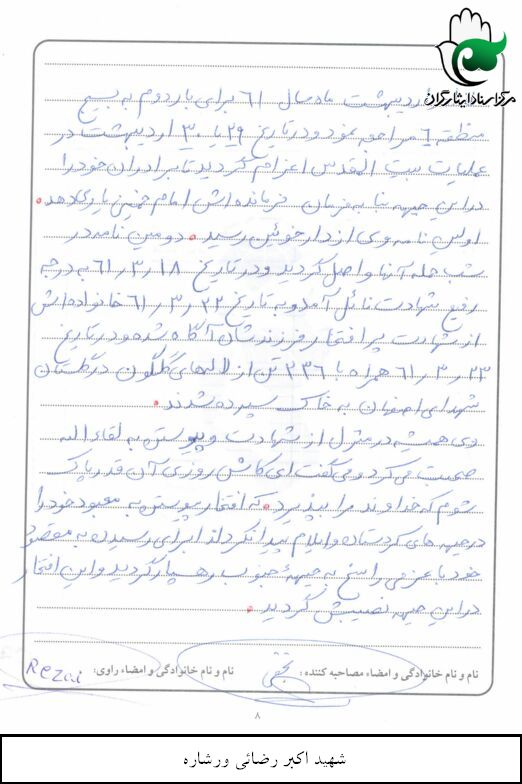 مرکز اسناد ایثارگران
اردیبهشت ماه سال ۶۱ برای بار دوم به بسیج
منطقه ۶ مراجعه نمود و در تاریخ ۲۹ یا ۳۰ اردیبهشت در
عملیات بیت المقدس اعزام گردید تا برادران خود را
در این جبهه بنا به فرمان فرمانده‌اش امام خمینی یاری دهد.
اولین نامه وی از دارخوئین رسید. دومین نامه در
شب حمله آنها واصل گردید و در تاریخ ۶۱/۳/۱۸ به درجه
رفیع شهادت نائل آمد و به تاریخ ۶۱/۳/۲۲ خانواده‌اش
از شهادت پر افتخار فرزندشان آگاه شده و در تاریخ
۶۱/۳/۲۳ همراه با ۲۳۶ تن از لاله‌های گلگون در گلستان
شهدای اصفهان به خاک سپرده شدند.
وی همیشه در منزل از شهادت و پیوستن به لقاء الله
صحبت می‌کرد و می‌گفت ای کاش روزی آن قدر پاک
شوم که خداوند مرا بپذیرد. که افتخار پیوستن به معبود خود را
در جبهه های کردستان و ایلام پیدا نکرد لذا برای رسیدن به مقصود
خود با عزمی راسخ به جبههٔ جنوب رهسپار گردید و این افتخار
در این جبهه نصیبش گردید.
نام و نام خانوادگی و امضاء مصاحبه کننده: نام و نام خانوادگی و امضاء راوی: Rezai
۸
شهید اکبر رضائی ورشاره